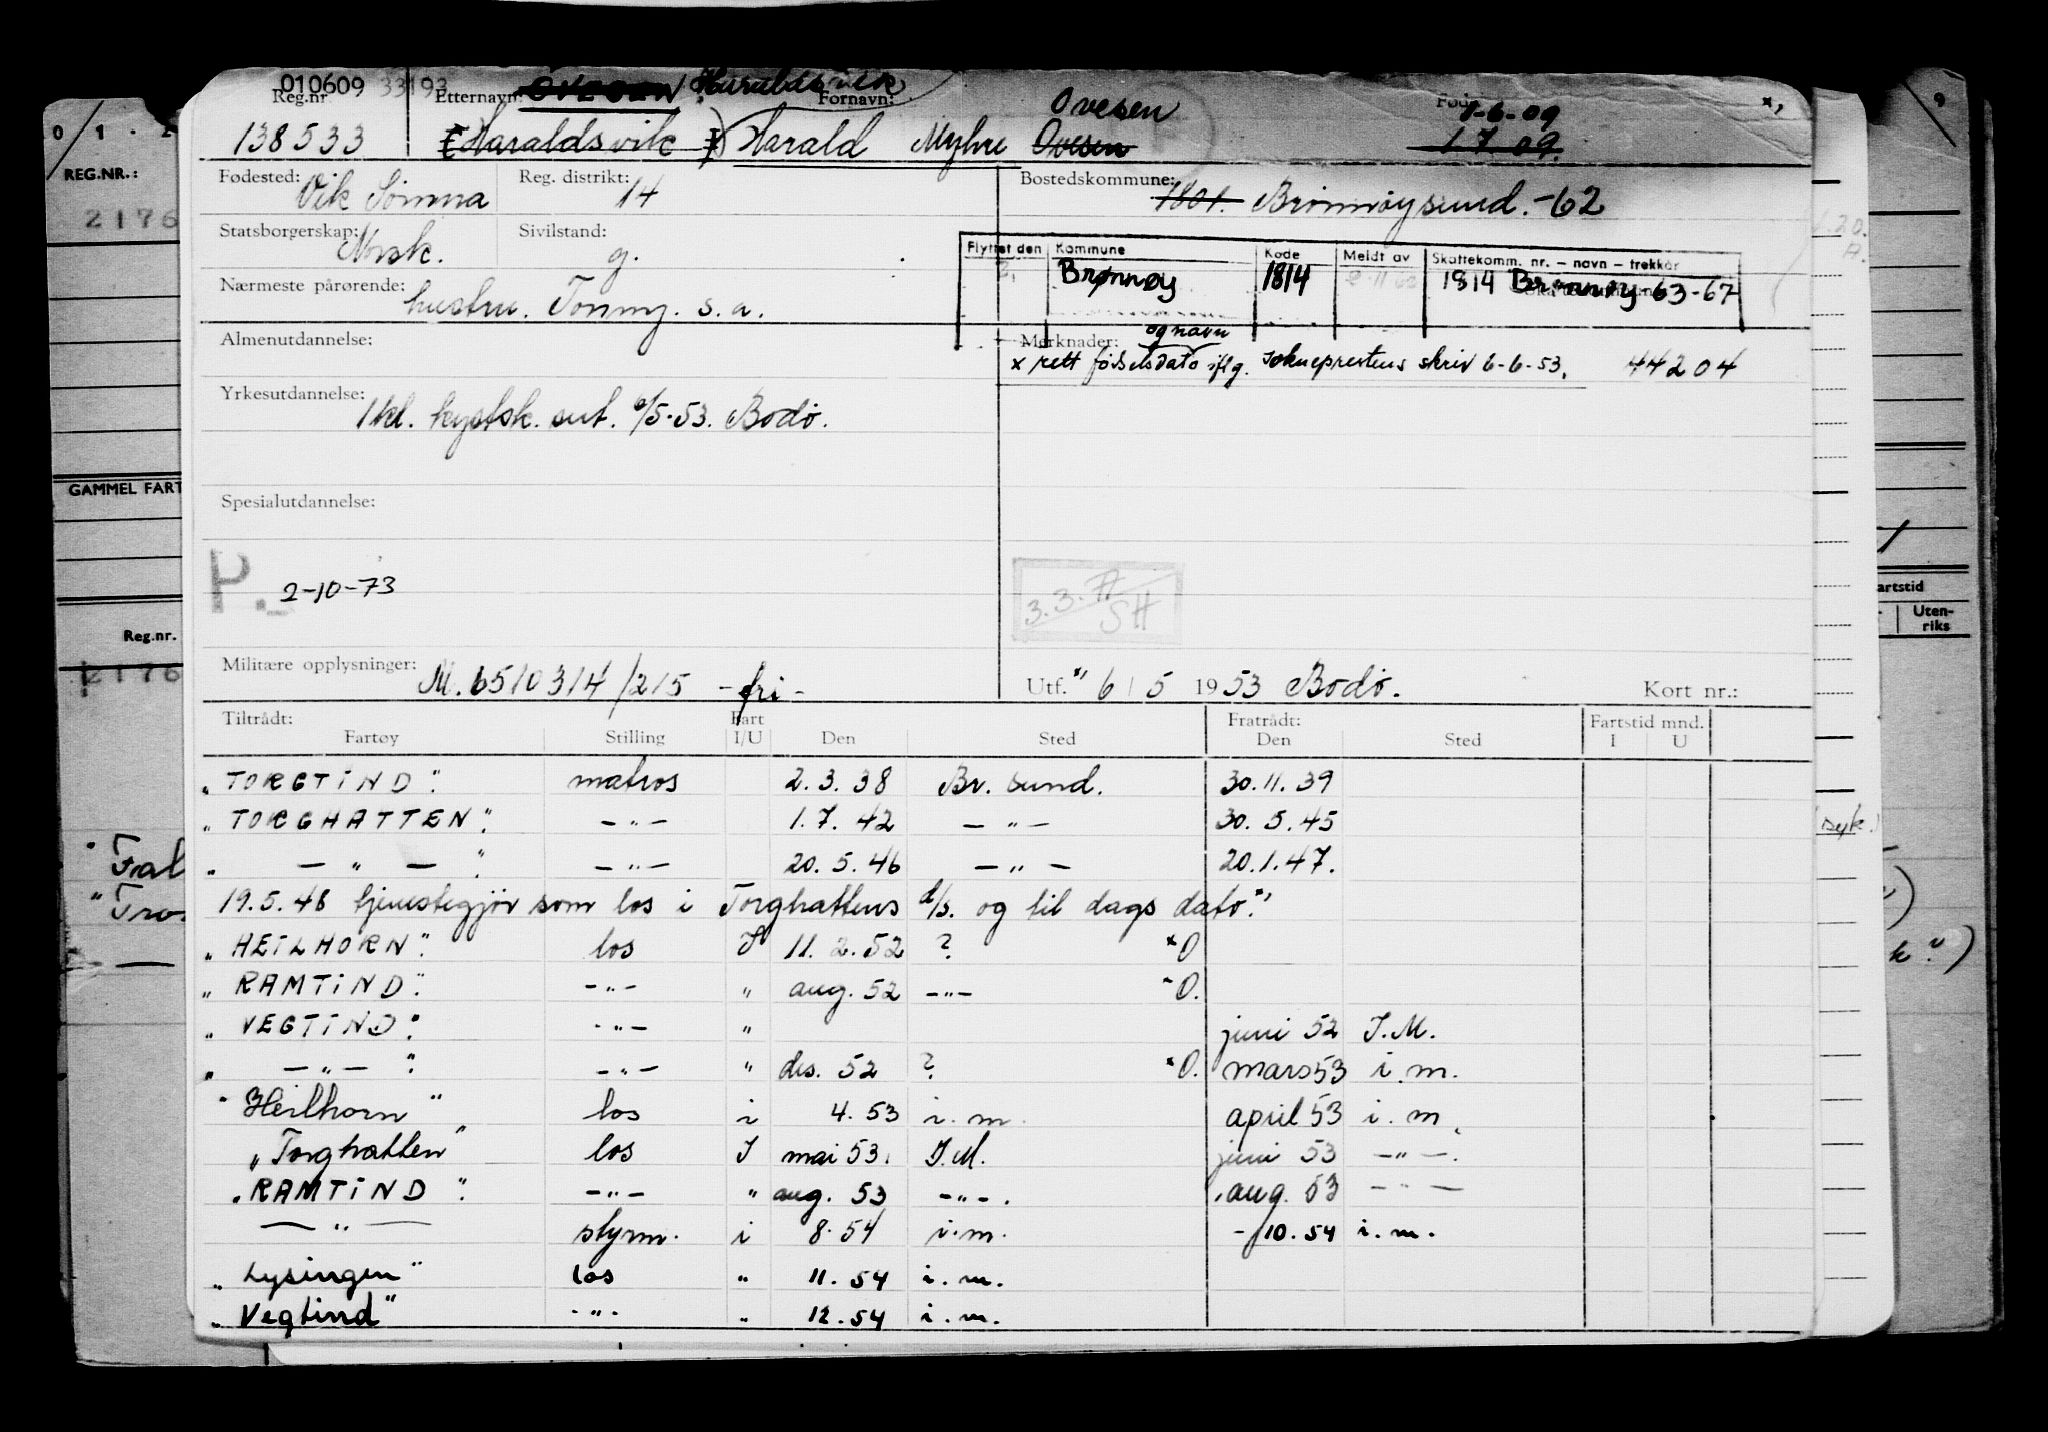 010609 33193
Reg.nr Etternavn: OVESEN Haraldsvik Fornavn: Ovesen Fød 1-6-09 x,
138533 (Haraldsvik) Harald Myhre Ovesen 1 7 09.
Fødested: Vik Sømna Reg. distrikt: 14 Bostedskommune: 1801. Brønnøysund. -62
Statsborgerskap: Norsk. Sivilstand: g.
Flyttet den Kommune Kode Meldt av Skattekomm. nr. – navn – trekkår
Brønnøy 1814 1814 Brønnøy-63-67
Nærmeste pårørende: hustru. Tonny. s. a.
Almenutdannelse:
Merknader: og navn
x rett fødselsdato iflg. sokneprestens skriv 6-6-53. 44204
Yrkesutdannelse: 1 kl. kystsk. sert. 6/5-53. Bodø.
Spesialutdannelse:
P. 2-10-73
3.3.71 SH
Militære opplysninger: M. 6510314/215 - fri -
Utf. " 6 / 5 1953 Bodø. Kort nr.:
Tiltrådt: Fart Fratrådt: Fartstid mnd.
Fartøy Stilling I/U Den Sted Den Sted I U
" TORGTIND " matros 2. 3. 38 Br. sund. 30. 11. 39
" TORGHATTEN " — " — 1. 7. 42 — " — 30. 5. 45
" — " — " — " — 20. 5. 46 — " — 20. 1. 47.
19.5.48 tjenestegjør som los i Torghattens d/s. og til dags dato "
" HEILHORN " los I 11. 2. 52 ? x O
" RAMTIND " — " — " aug. 52 — " — x O.
" VEGTIND " — " — " juni 52 I.M.
" — " — " — " — " des. 52 ? x O. mars 53 i.m.
" Heilhorn " los i 4. 53 i.m. april 53 i.m.
" Torghatten " los I mai 53. I.M. juni 53 — " —.
" RAMTIND " — " — " aug. 53 — " — . aug. 53 — " —
— " — styrm. i 8. 54 i.m. - 10. 54 i.m.
" Lysingen " los " 11. 54 i.m.
" Vegtind " - " - " 12. 54 i.m.
REG.NR.:
2176
GAMMEL FART
Reg.nr.
2176
" Fal
" Tro
artstid
Uten-
riks